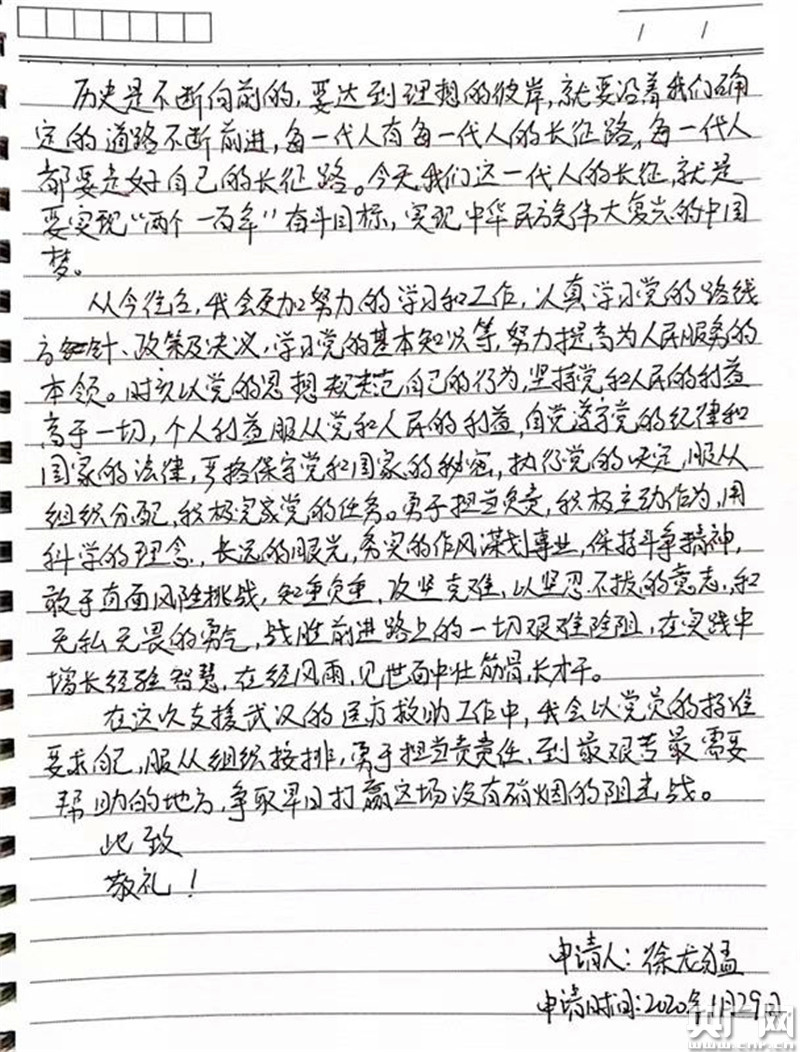 / /
历史是不断向前的,要达到理想的彼岸,就要沿着我们确
定的道路不断前进,每一代人有每一代人的长征路,每一代人
都要走好自己的长征路。今天,我们这一代人的长征,就是
要实现“两个一百年”奋斗目标,实现中华民族伟大复兴的中国
梦。
从今往后,我会更加努力的学习和工作,认真学习党的路线
方针、政策及决议,学习党的基本知识等,努力提高为人民服务的
本领。时刻以党的思想规范自己的行为,坚持党和人民的利益
高于一切,个人利益服从党和人民的利益,自觉遵守党的纪律和
国家的法律,严格保守党和国家的秘密,执行党的决定,服从
组织分配,积极完成党的任务。勇于担当负责,积极主动作为,用
科学的理念,长远的眼光,务实的作风谋划事业,保持斗争精神,
敢于直面风险挑战,知重负重,攻坚克难,以坚忍不拔的意志,和
无私无畏的勇气,战胜前进路上的一切艰难险阻,在实践中
增长经验智慧,在经风雨,见世面中壮筋骨,长才干。
在这次支援武汉的医疗救助工作中,我会以党员的标准
要求自己,服从组织按排,勇于担当责任,到最艰苦最需要
帮助的地方,争取早日打赢这场没有硝烟的阻击战。
此致
敬礼!
申请人:徐龙猛
申请时间:2020年1月29日
央广网
www.cnr.cn